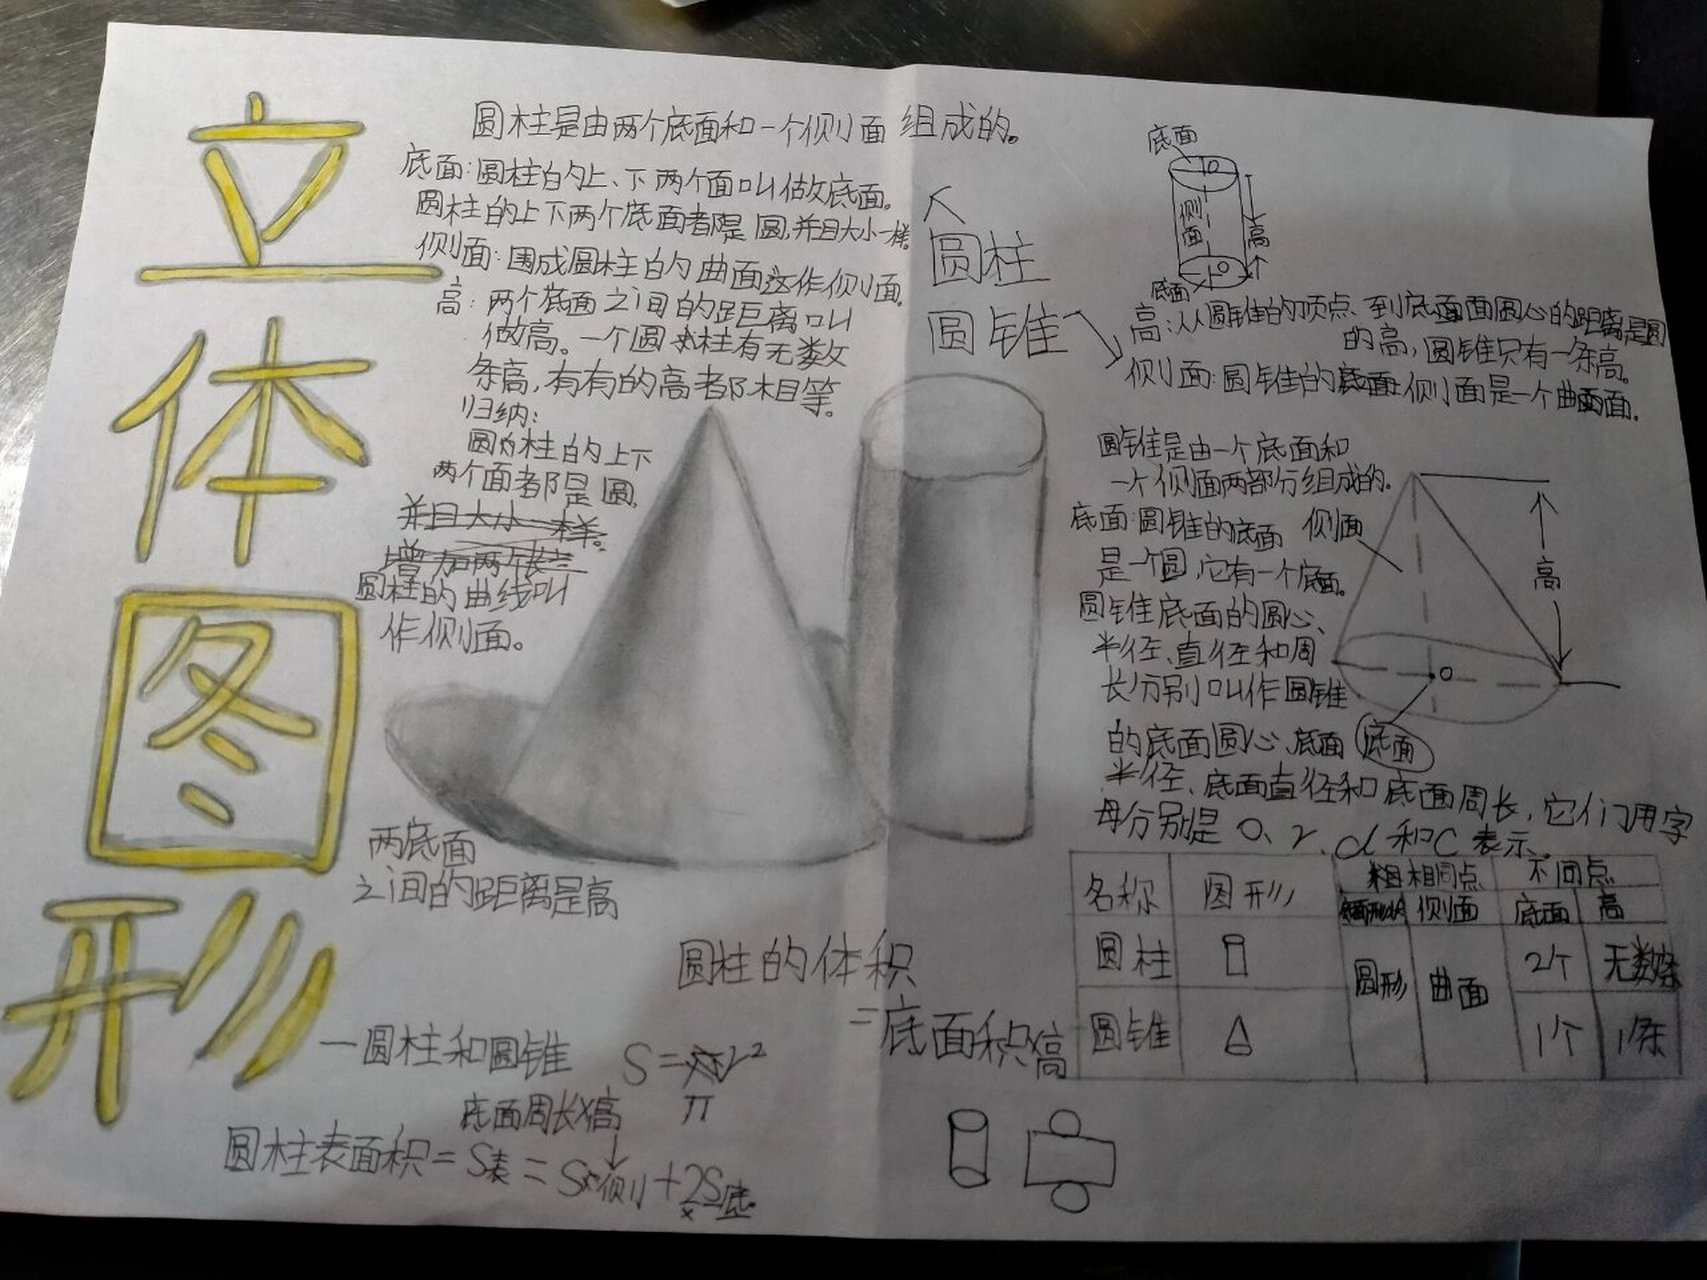 立体图形
一圆柱和圆锥
圆柱是由两个底面和一个侧面组成的。
底面:圆柱的上、下两个面叫做底面。
圆柱的上下两个底面都是圆,并且大小一样。
侧面:围成圆柱的曲面这作侧面。
高:两个底面之间的距离叫
做高。一个圆柱有无数
条高,有有的高都相等。
归纳:
圆柱的上下
两个面都是圆,
并且大小一样。
增加两个
圆柱的曲线叫
作侧面。
两底面
之间的距离是高
圆柱
圆锥
底面
侧面
高
底面
高:从圆锥的顶点、到底面面圆心的距离是圆
的高,圆锥只有一条高。
侧面:圆锥的侧面是一个曲面。
圆锥是由一个底面和
一个侧面两部分组成的。
底面:圆锥的底面
是一个圆,它有一个底面。
圆锥底面的圆心、
半径、直径和周
长分别叫作圆锥
的底面圆心、底面
半径、底面直径和底面周长,它们用字
母分别是O、r、d和C表示。
侧面
高
O
底面
名称 图形 相同点 不同点
侧面 底面 高
圆柱 圆形 曲面 2个 无数条
圆锥 1个 1条
圆柱的体积
=底面积高
S=r²
π
底面周长×高
圆柱表面积=S表=S侧+2S底。